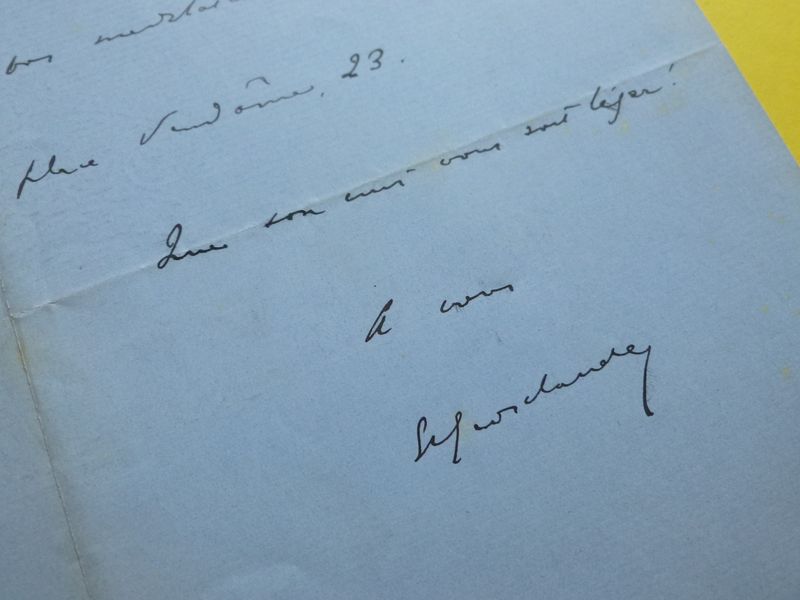 vos
place Vendôme, 23.
Que son nuit vous soit léger!
A vous